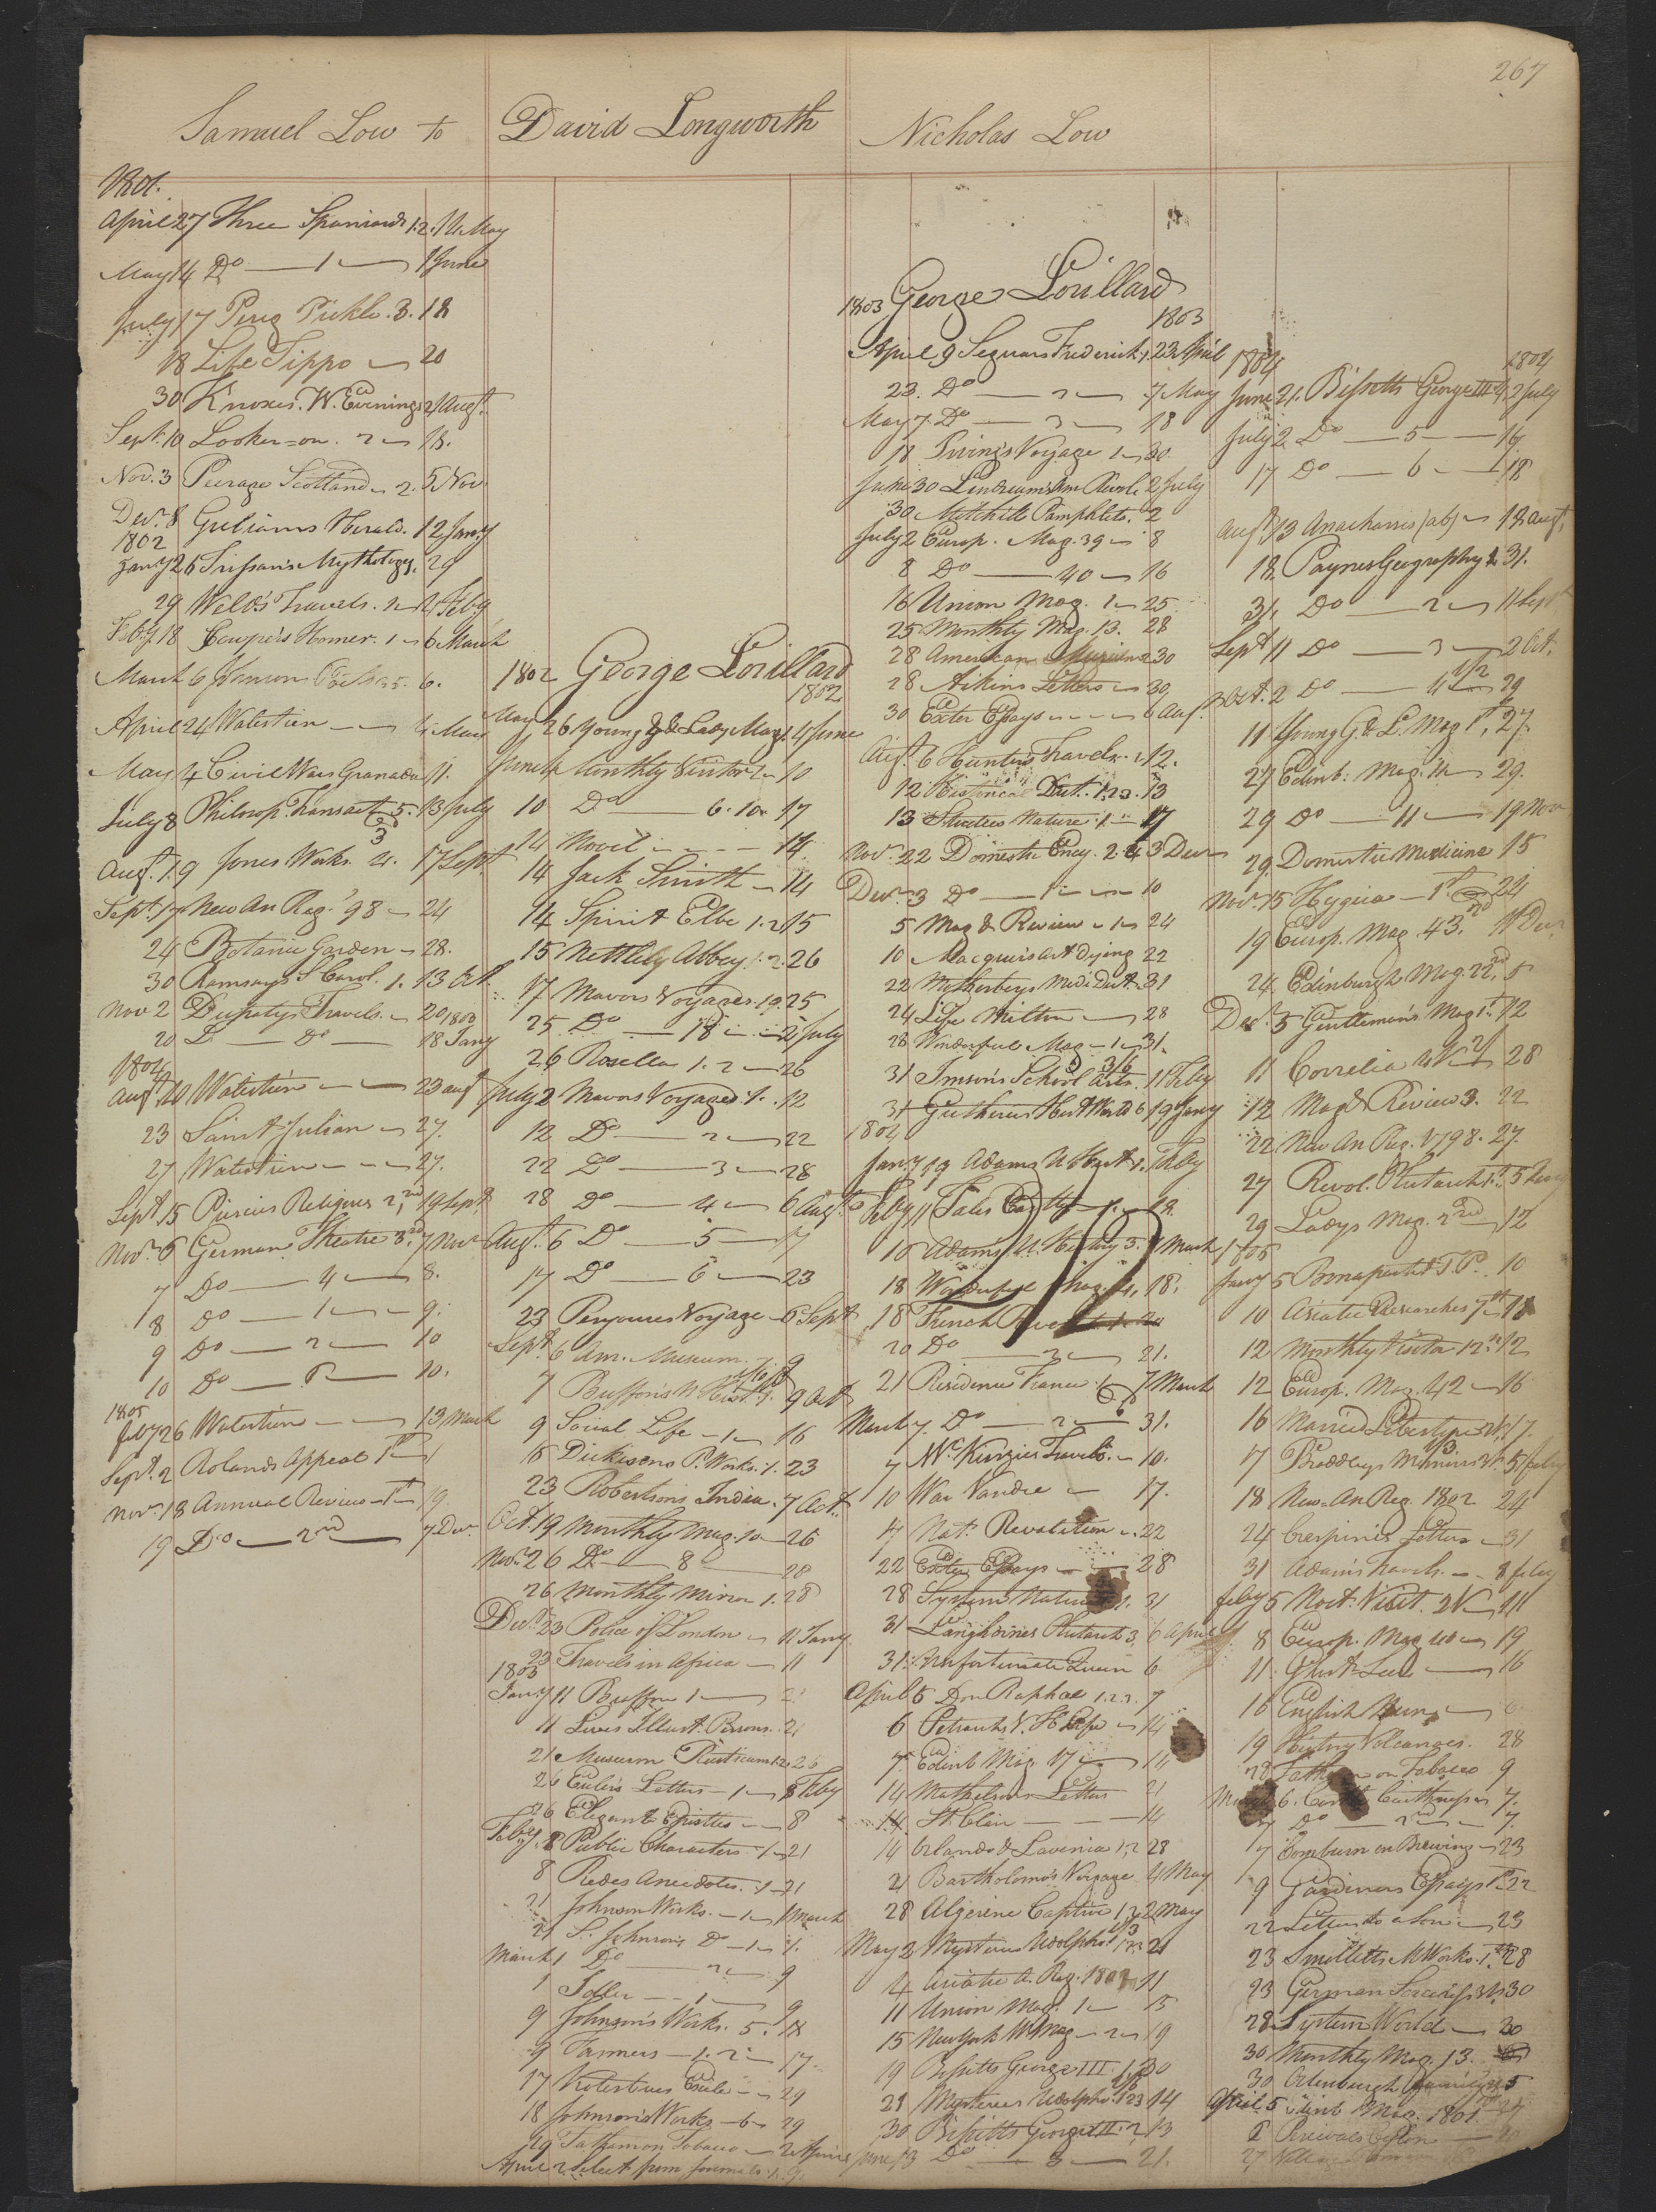 267
Samuel Low to
1801.
April 27 Three Spaniards 1.2. 14 May
May 14 Do — 1 — 1 June
July 17 Pereg Pickle. 3. 18
18 Life Tippo — 20
30 Knoxes. W. Evenings 21 Augt
Sept. 10 Looker-on. 2 — 18.
Nov. 3 Peerage Scotland — 2. 5 Nov
Decr. 8 Herald. 12 Jany
1802
Jany 26 Mythology. 29
29 Weld's Travels. 2 Feby
Feby 18 Cowpers Homer. 1 — 6 March
March 6 Johnsons 6.
April 24 Walstein — 4 May
May 4 Civil Wars Granada 11.
July 8 Philosop. Transact. 5. 13 July
Augt. 19 Jones Works. 4. 3 17 Sept
Sept. 17 New An Reg. '98 — 24
24 Botanic Garden — 28.
30 Ramsays S Carol. 1. 13 Oct
Nov 2 Dupatys Travels. — 20
1803
20 Do — Do — 18 Jany
1804
Augt 20 Walstein — 23 augt
23 Saint Julian — 27.
27 Walstein — 27.
Sept 15 Religious 2nd 19 Sept
Novr 6 German Theatre 3rd 7 Novr
7 Do — 4 — 8.
8 Do — 1 — 9.
9 Do — 2 — 10
10 Do — 10.
1805
feby 26 Walstein — 13 March
Sept. 2 Rolands Appeal 1st
Novr 18 Annual Review 1st 19
19 Do — 2nd — 7 Decr.
David Longworth
1802 George Lorillard
1802
May 26 Young G & Lady Mag. 1. 4 June
June 4 Monthly Visitor 2 — 10
10 Do — 6. 10. 17
14 Novel — 14.
14 Jack Smith — 14
14 Spirit Elbe 1. 2 15
15 Nettley Abbey 1. 2. 26
17 Mavors Voyages. 19. 25
25 Do — 18 — 2 July
26 Rosella 1. 2 — 26
July 2 Mavors Voyages. 1. 12
12 Do — 2 — 22
22 Do — 3 — 28
28 Do — 4 — 6 Augt
Augt. 6 Do — 5 — 17
17 Do — 6 — 23
23 Perouses Voyage — 6 Sept
Sept 6 Am. Museum. 7 9
7 Buffon's N Hist. 1. 9 Oct
9 Social Life — 1 — 16
16 Dickisons P. Works. 1. 23
23 Robertsons India. 7 Oct.
Oct. 19 Monthly Mag. 10 — 26
Novr. 26 Do — 8 — 28
26 Monthly Mirror 1. 28
Decr 23 Police of London — 11 Jany
23 Travels in Africa — 11
1803
Jany 11 Buffon 1 — 21
11 Lives Illust. Persons. 21
21 Museum Rusticum 1.2. 26
26 Eulers Letters — 1 — 8 Feby
26 Elegant Epistles — 8
Feby. 8 Public Characters. 1 — 21
8 Redes Anecdotes. 1 — 21
21 Johnson Works. — 1 — 1 March
21 S. Johnson's Do — 1 — 1.
March 1 Do — 2 — 9
1 Idler — 1 — 9
9 Johnson's Works. 5. 18
9 Farmers — 1. 2 — 17
17 — 29
18 Johnson's Works — 6 — 29
29 Tatham on Tobacco — 2 Aprile
April 2 Select from Journals. 1. 9.
Nicholas Low
1803 George Lorillard
1803
April 9 Segurs Frederick 1. 23 April
23. Do — 2 — 7 May
May 7. Do — 3 — 18
18 Irving's Voyage 1 — 30
June 30 Lendrum's Am Revolt. 2 July
30 Mitchill Pamphlets. 2
July 2 Europ. Mag. 39 — 8
8 Do — 40 — 16
16 Union Mag. 1 — 25
25 Monthly Mag. 13. 28
28 American Museum 2 30
28 Aikins Letters — 30,
30 Exeter Essays — 6 Aug.
Augt. 6 Hunter's Travels. 1. 12.
12 Historical Dict. 1.2.3. 13
13 Studies Nature. 1 — 17
Novr. 22 Domestic Ency. 2. 3 Decr
Decr. 3 Do — 1 — 10
5 Mag & Review — 1 — 24
10 Macquers Art Dying 22
22 Motherbys Medl Dict. 31
24 Life Milton — 28
28 Wonderful Mag — 1 — 31.
31 Imson's School Arts. 3/6 11 Feby
31 Guthries Hist World 6 19 Jany
1804
Jany 19 Adams N Hist 1. Feby
Feby 11 Tales Castle — 1 — 18.
16 Adams N. History 3. March
18 Wonderful Mag 4. 18.
18 French Revol 20
20 Do — 2 — 21.
21 Residence France. 1 7 March
March 7. Do — 2 — 31.
7 McKinzies Travels. — 10.
10 War Vandee — 17.
17 Nat. Revolution — 22
22 Exeter Essays — 28
28 System Nature 1. 31
31 Langhornes Plutarch 3, 6 April
31. Unfortunate Queen 6
April 6 Don Raphael 1.2.3. 7
6 Petrarchs — 14
7 Edinb Mag. 17 — 14
14 Letters 21
14 St. Clair — 14
14 Orlando & Lavinia 1,2 28
21 Bartholomo's Voyage 4 May
28 Algerine Captive 1,2 2 May
May 2 Mysteries Udolpho. 1.2.3 21
4 Asiatic A. Reg. 1801 11
11 Union Mag. 1 — 15
15 New York W Mag — 2 — 19
19 Bissetts George III. 1,2 30
21 Mysteries Udolpho. 1.2.3 14
30 Bissetts George III. 2, 13
June 13 Do — 3 — 21.
1804
1804
June 21. Bissetts George III 4, 2 July
July 2 Do — 5 — 17
17 Do — 6 — 18
Augt 13 Anacharsis (ab) — 18 augt.
18 Paynes Geography 1. 31.
31, Do — 2 — 11 Sept
Sept 11 Do — 3 — 2 Oct.
Oct. 2 Do — 4 — 29
11 Young G. & L. Mag 1st, 27.
27 Edinb. Mag. 14 — 29.
29 Do — 11 — 19 Nov
29. Domestic Medicine 15
Novr. 15 Hygeia — 1st — 24
19 Europ. Mag. 43. 11 Decr
24. Edinburgh Mag. 22nd, 5
Decr. 5 Gentlemen's Mag 1st. 12
11 Correlia 28
12 Mag & Review 3. 22
22 New An Reg. 1798. 27.
27 Revol. Plutarch 1st, 5 Jany
29 Ladys Mag. 2nd 12
1805
Jany 5 Bonaparte T.P. 10
10 Asiatic Researches 7th 18
12 Monthly Visitor 12th 12
12 Europ. Mag. 42 — 16
16 Married Libertine 17.
17 Braddleys 5 feby
18 New-An Reg. 1802 24
24 Crespines Letters — 31
31 Adams Travels. — 8 feby
feby 5 Noct. Visit. 2 V — 11
8 Europ. Mag 40 — 19
11. Ghost Seer — 16
16 English Nun
19 History Volcanoes. 28
28 Tatham on Tobacco 9
6. Castle Caithness 7.
7 Do — 2nd — 7.
7 Comburn on Brewing — 23
9 Gardiners Essays 1st 22
22 Letters to a Son — 23
23 Smolletts M Works. 1st. 28
23 German 30
28 System World — 30
30 Monthly Mag. 13.
30 Orlenburgh family 5
April 5 Edinb Mag. 1801
6 Percivals Ceylon — 20
27